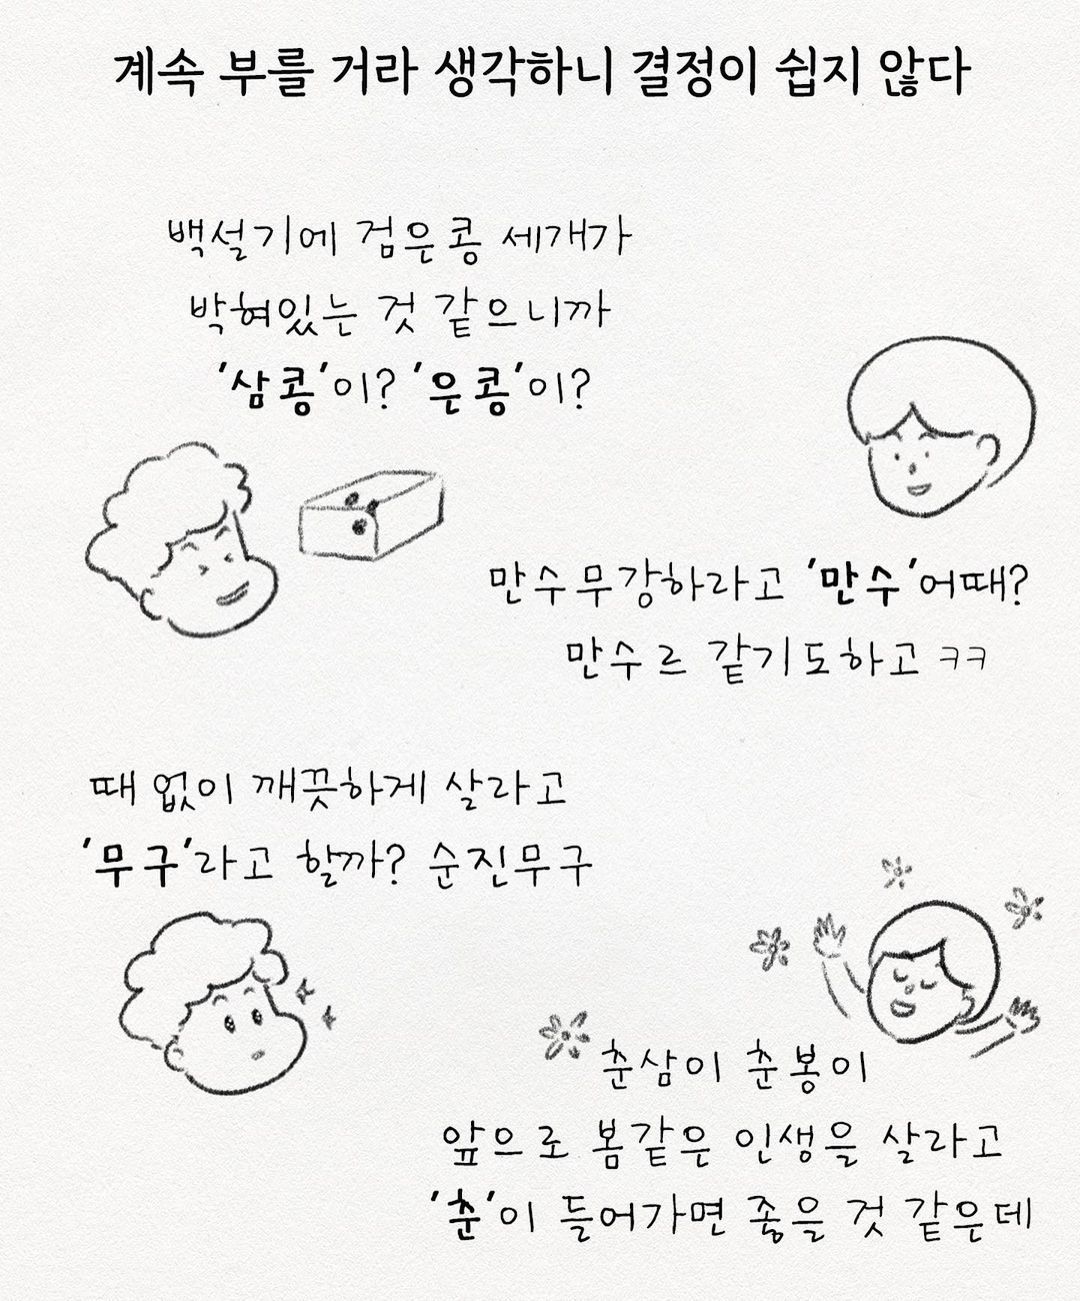 계속 부를 거라 생각하니 결정이 쉽지 않다
백설기에 검은콩 세개가
박혀있는 것 같으니까
'삼콩'이? '은콩'이?
만수무강하라고 '만수'어때?
만수르 같기도하고 ㅋㅋ
때 없이 깨끗하게 살라고
'무구'라고 할까? 순진무구
춘삼이 춘봉이
앞으로 봄같은 인생을 살라고
'춘'이 들어가면 좋을 것 같은데